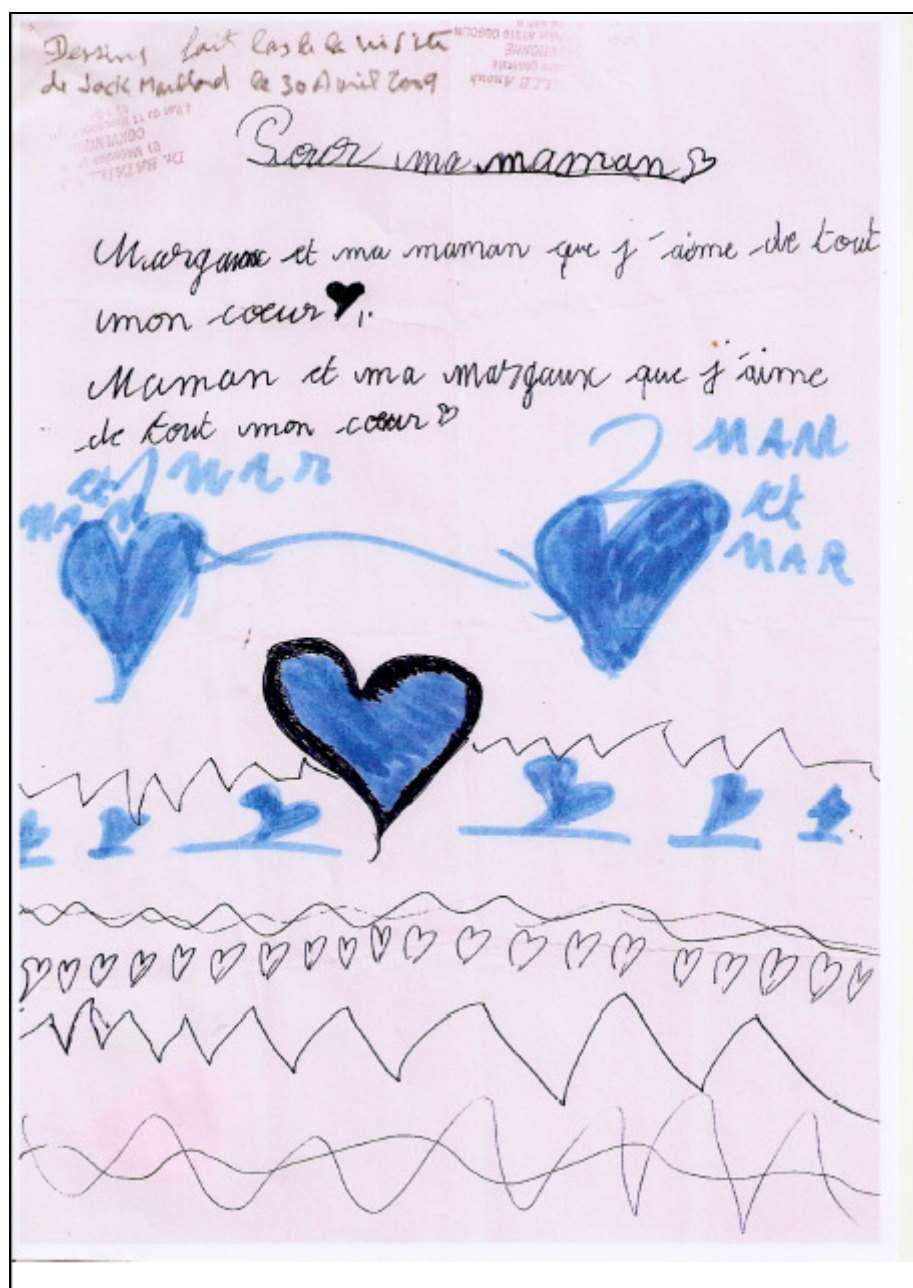 Dessins fait lors de la visite
de Jack Maillard le 30 Avril 2009
COGOLIN
Pour ma maman
Margaux et ma maman que j'aime de tout
mon coeur
Maman et ma margaux que j'aime
de tout mon coeur
et MAR
MAM
et
MAR